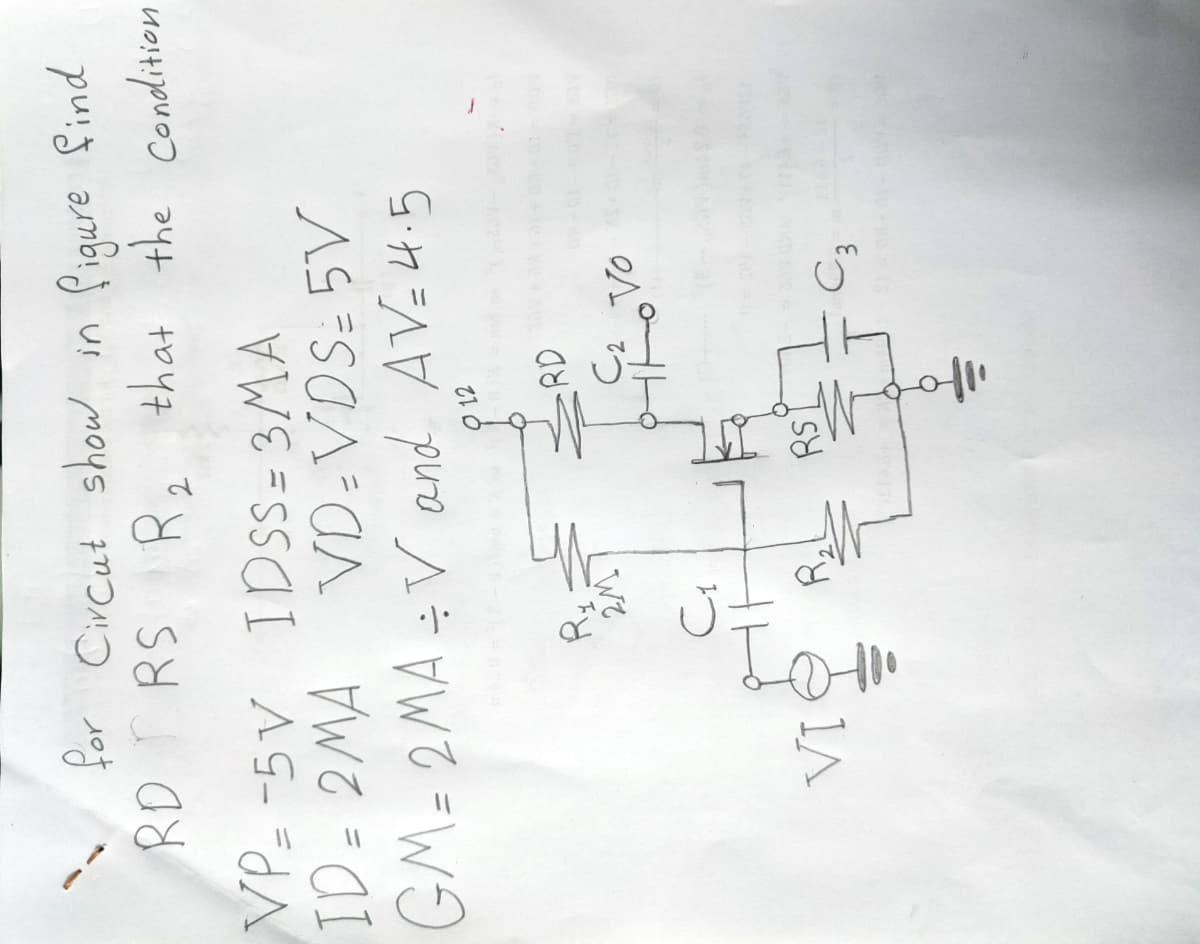 for Circut show in figure find
RD RS R2 that the condition
VP = -5V IDSS = 3MA
ID = 2MA VD = VDS = 5V
GM = 2MA ÷ V and AV = 4.5
12
R1 RD
2M
C2 VO
C1
R2 RS C3
VI